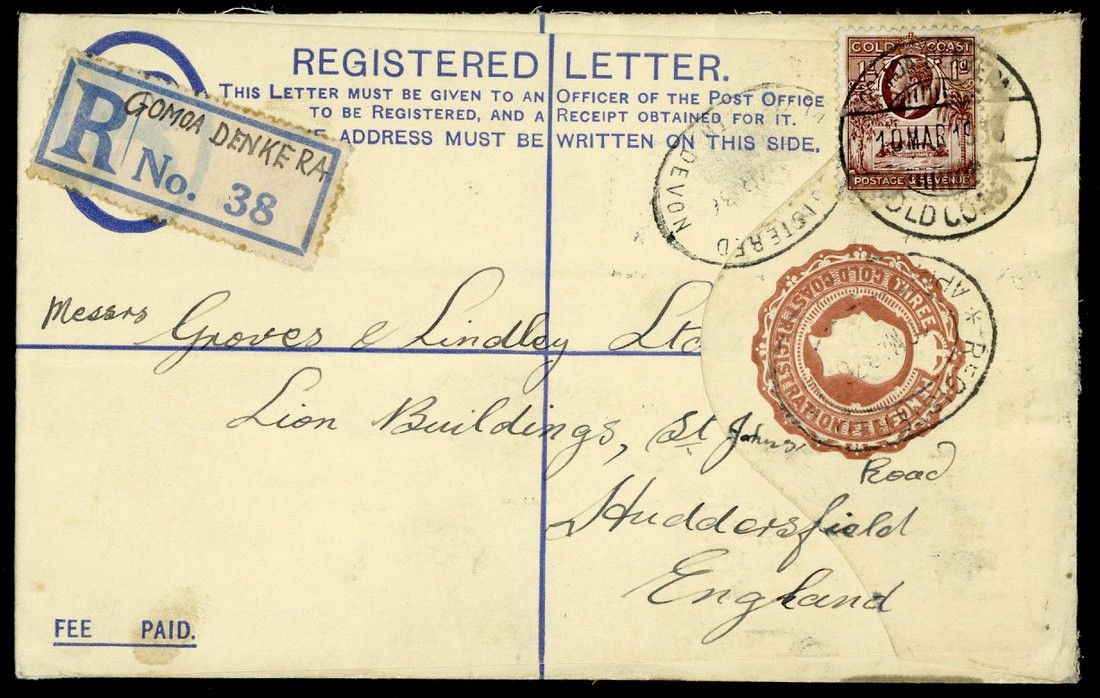 REGISTERED LETTER.
THIS LETTER MUST BE GIVEN TO AN OFFICER OF THE POST OFFICE
TO BE REGISTERED, AND A RECEIPT OBTAINED FOR IT.
ADDRESS MUST BE WRITTEN ON THIS SIDE.
R
GOMOA DENKERA
No. 38
GOLD COAST
1D 1D
POSTAGE & REVENUE
10 MAR
GOLD COAST
REGISTERED
DEVON
GOLD COAST REGISTRATION THREE PENCE
REGISTERED
Messrs Groves & Lindley Ltd
Lion Buildings, St Johns
Road
Huddersfield
England
FEE PAID.